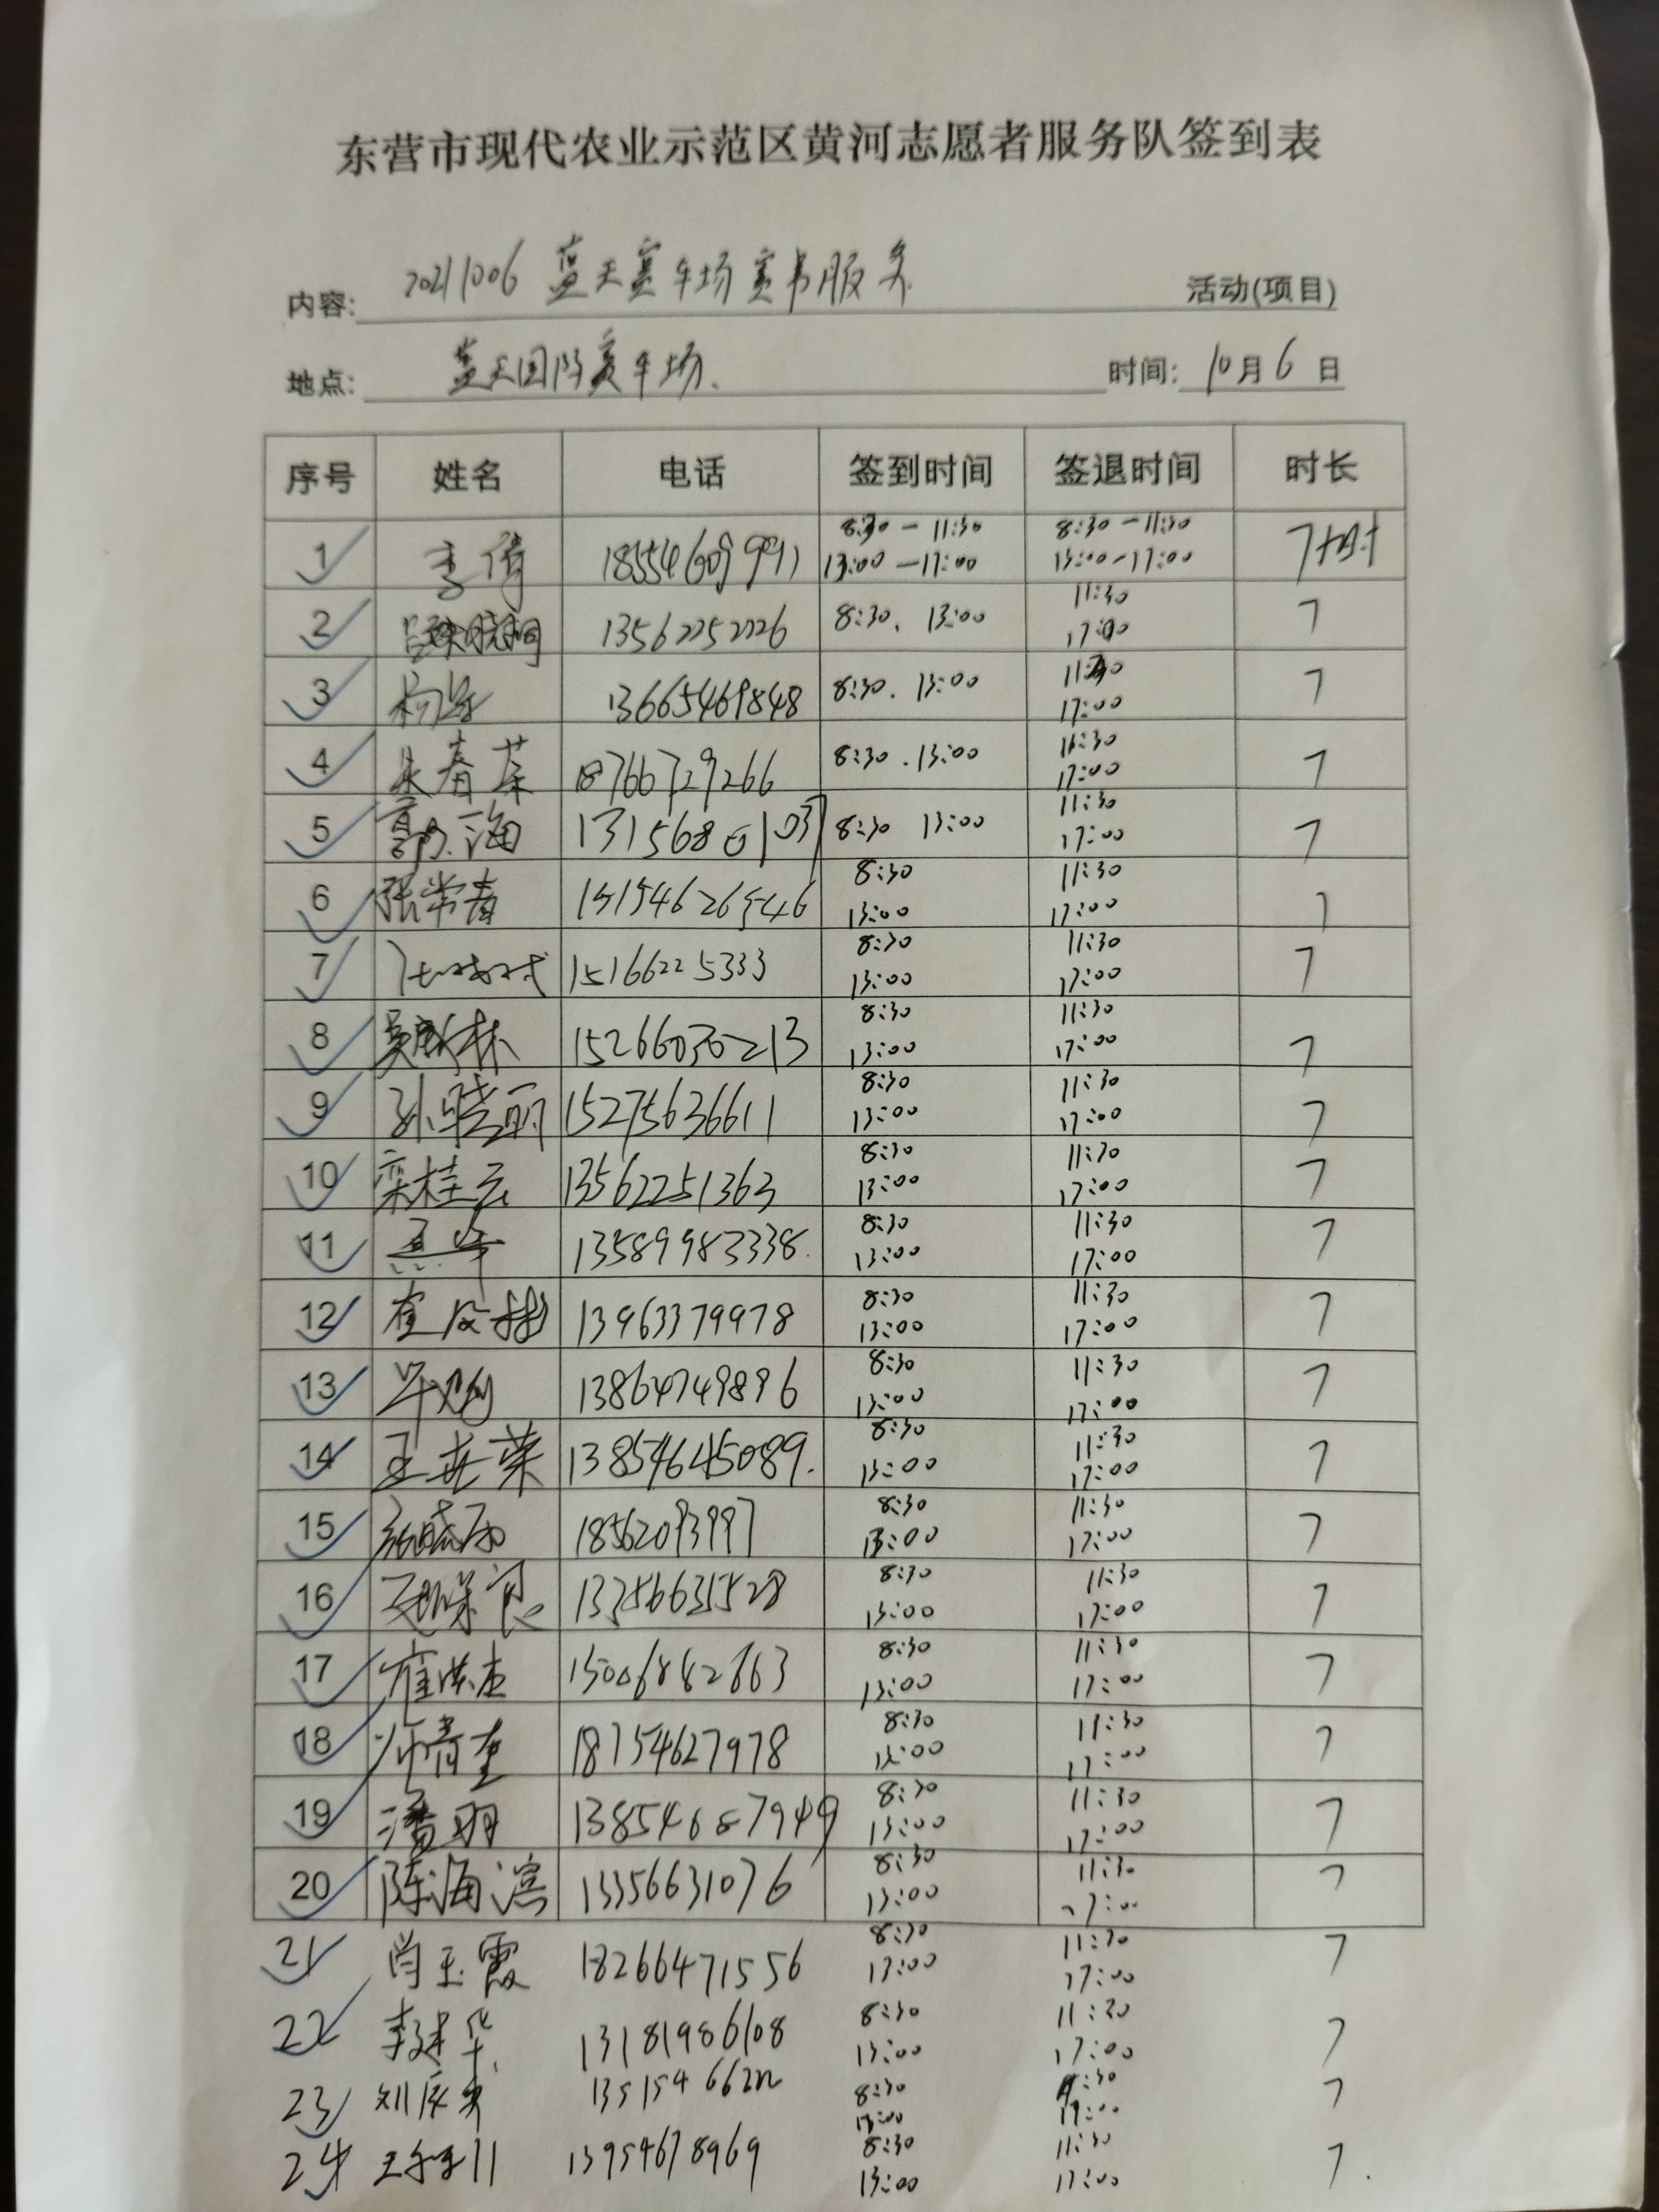 东营市现代农业示范区黄河志愿者服务队签到表
内容: 20211006 蓝天赛车场赛书服务 活动(项目)
地点: 蓝天国际赛车场. 时间: 10月6日
序号 姓名 电话 签到时间 签退时间 时长
8:30-11:30 8:30-11:30
1 李倩 18554609991 13:00-17:00 13:00-17:00 7小时
11:30
2 13562252226 8:30. 13:00 17:00 7
11:30
3 13665469848 8:30. 13:00 17:00 7
11:30
4 春 18766729266 8:30. 13:00 17:00 7
11:30
5 海 13156800103 8:30 13:00 17:00 7
8:30 11:30
6 张常春 15154626546 13:00 17:00 7
8:30 11:30
7 15166225333 13:00 17:00 7
8:30 11:30
8 林 15266030213 13:00 17:00 7
8:30 11:30
9 孙晓丽 15275636611 13:00 17:00 7
8:30 11:30
10 栾桂云 13562251363 13:00 17:00 7
8:30 11:30
11 13589983338 13:00 17:00 7
8:30 11:30
12 13963379978 13:00 17:00 7
8:30 11:30
13 13864749896 13:00 17:00 7
8:30 11:30
14 王荣 13854645089. 13:00 17:00 7
8:30 11:30
15 18562093997 13:00 17:00 7
8:30 11:30
16 赵荣良 13356631528 13:00 17:00 7
8:30 11:30
17 崔洪杰 15006882663 13:00 17:00 7
8:30 11:30
18 许青奎 18754627978 13:00 17:00 7
8:30 11:30
19 潘羽 13854687949 13:00 17:00 7
8:30 11:30
20 陈海滨 13356631076 13:00 17:00 7
8:30 11:30
21 尚玉霞 18266471556 13:00 17:00 7
8:30 11:30
22 李建华 13181986108 13:00 17:00 7
8:30 11:30
23 刘庆 13:00 17:00 7
8:30 11:30
24 王 13954678969 13:00 17:00 7.